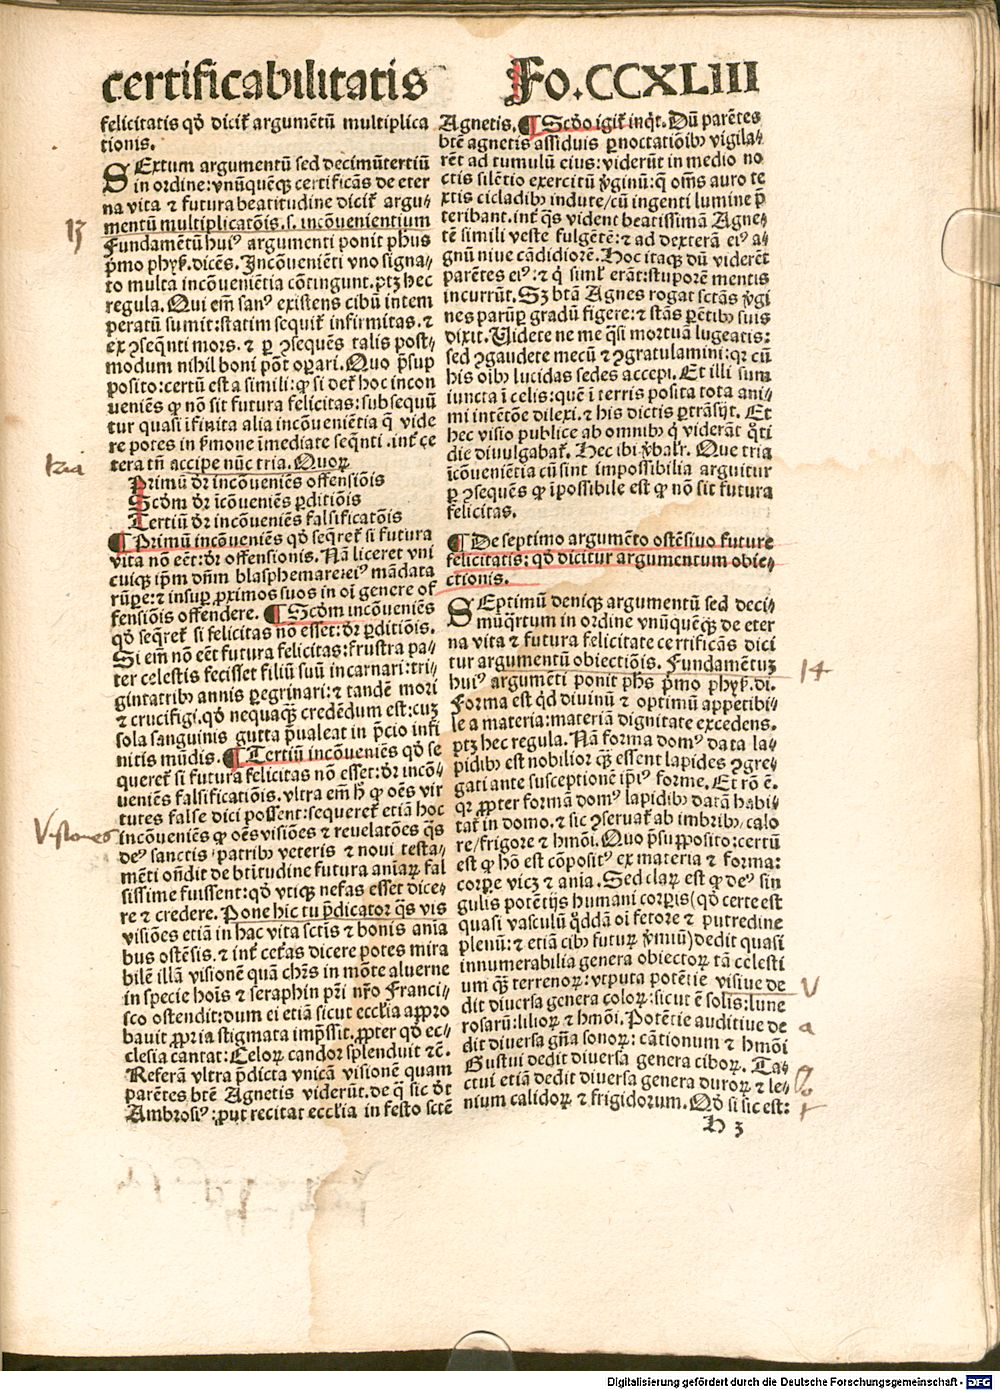 certificabilitatis Fo.CCXLIII
felicitatis qď dicit̃ argumẽtũ multiplica
tionis.
SExtum argumentũ sed decimũtertiũ
in ordine: vnũquẽqꝫ certificãs de eter
na vita ⁊ futura beatitudine dicit̃ argu⸗
mentũ multiplicatõis.s. incõuenientium
Fundamẽtũ huiꝰ argumenti ponit phus
p̃mo phyſ. dicẽs. Incõueniẽti vno signa⸗
to multa incõueniẽtia cõtingunt. ptꝫ hec
regula. Qui em̃ sanꝰ existens cibũ intem
peratũ sumit: statim sequit̃ infirmitas. ⁊
ex ꝯseq̃nti mors. ⁊ ꝑ ꝯsequẽs talis post⸗
modum nihil boni põt opari. Quo p̃sup
posito: certũ est a simili: ꝙ si det̃ hoc incon
ueniẽs ꝙ nõ sit futura felicitas: subsequũ
tur quasi ĩfinita alia incõueniẽtia q̃ vide
re potes in p̃mone ĩmediate seq̃nti. int̃ ce
tera tñ accipe nũc tria. Quoꝝ
Primũ dr̃ incõueniẽs offensiõis
Scďm dr̃ ĩcõueniẽs ꝑditiõis
Tertiũ dr̃ incõueniẽs falsificatõis
¶ Primũ incõueniẽs qď seq̃ret̃ si futura
vita nõ eẽt: dr̃ offensionis. Nã liceret vni
cuiqꝫ ip̃m dñm blasphemare: eiꝰ mãdata
rũpe: ⁊ insuꝑ ꝓximos suos in oĩ genere of
fensiõis offendere. ¶ Scďm incõueniẽs
qď seq̃ret̃ si felicitas nõ esset: dr̃ ꝑditiõis.
Si em̃ nõ eẽt futura felicitas: frustra pa⸗
ter celestis fecisset filiũ suũ incarnari: tri⸗
gintatribꝰ annis ꝑegrinari: ⁊ tandẽ mori
⁊ crucifigi. qď nequaqꝫ credẽdum est: cuꝫ
sola sanguinis gutta p̃ualeat in p̃cio infi
nitis mũdis. ¶ Tertiũ incõueniẽs qď se
queret̃ si futura felicitas nõ esset: dr̃ incõ⸗
ueniẽs falsificatiõis. vltra em̃ h̃ ꝙ oẽs vir
tutes false dici possent: sequeret̃ etiã hoc
incõueniẽs ꝙ oẽs visiões ⁊ reuelatões q̃s
deꝰ sanctis patribꝰ veteris ⁊ noui testa⸗
mẽti oñdit de btĩtudine futura aniaꝝ fal
sissime fuissent: qď vtiqꝫ nefas esset dice⸗
re ⁊ credere. Pone hic tu p̃dicator q̃s vis
visiões etiã in hac vita sctĩs ⁊ bonis ania
bus ostẽsis. ⁊ int̃ cet̃as dicere potes mira
bilẽ illã visionẽ quã chr̃s in mõte aluerne
in specie hoĩs ⁊ seraphin pr̃i nr̃o Franci⸗
sco ostendit: dum ei etiã sicut ecclia appro
bauit ꝓpria stigmata imp̃ssit. ꝓpter qď ec⸗
clesia cantat: Celoꝝ candor splenduit ⁊c̃.
Referã vltra p̃dicta vnicã visionẽ quam
parẽtes btẽ Agnetis viderũt. de q̃ sic dr̃
Ambrosiꝰ: put recitat ecclia in festo sctẽ
Agnetis. ¶ Scďo igit̃ inq̃t. Dũ parẽtes
btẽ agnetis assiduis ꝑnoctatiõibꝰ vigila⸗
rẽt ad tumulũ eius: viderũt in medio no
ctis silẽtio exercitũ v̓ginũ: q̃ om̃s auro te
xtis cicladibꝰ indute/ cũ ingenti lumine p̃
teribant. int̃ q̃s vident beatissimã Agne⸗
tẽ simili veste fulgẽtẽ: ⁊ ad dexterã eiꝰ a⸗
gnũ niue cãdidiorẽ. Hoc itaqꝫ dũ viderẽt
parẽtes eiꝰ: ⁊ q̓ simĩ erãt: stuporẽ mentis
incurrũt. Sꝫ btã Agnes rogat sctãs v̓gi
nes parũꝑ gradũ figere: ⁊ stãs parẽtibꝰ suis
dixit. Videte ne me q̃si mortuã lugeatis:
sed ꝯgaudete mecũ ⁊ ꝯgratulamini: qꝛ cũ
his oĩbꝰ lucidas sedes accepi. Et illi sum
iuncta ĩ celis: quẽ ĩ terris posita tota ani⸗
mi intẽtõe dilexi. ⁊ his dictis ꝑtrãsijt. Et
hec visio publice ab omnibꝰ q̓ viderãt q̊ti
die diuulgabat̃. Hec ibi v̓balr̃. Que tria
ĩcõueniẽtia cũ sint impossibilia arguitur
ꝑ ꝯsequẽs ꝙ ĩpossibile est ꝙ nõ sit futura
felicitas.
¶ De septimo argumẽto ostẽsiuo future
felicitatis: qď dicitur argumentum obie⸗
ctionis.
SEptimũ deniqꝫ argumẽtũ sed deci⸗
mũq̃rtum in ordine vnũquẽqꝫ de eter
na vita ⁊ futura felicitate certificãs dici
tur argumentũ obiectiõis. Fundamẽtuꝫ
huiꝰ argumẽti ponit phs̃ p̃mo phyſ. di.
Forma est q̓d diuinũ ⁊ optimũ appetibi⸗
le a materia: materiã dignitate excedens.
ptꝫ hec regula. Nã forma domꝰ data la⸗
pidibꝰ est nobilior qꝫ essent lapides ꝯgre⸗
gati ante susceptionẽ ip̃iꝰ forme. Et rõ ẽ.
qꝛ ꝓpter formã domꝰ lapidibꝰ datã habi⸗
tat̃ in domo. ⁊ sic ꝯseruat̃ ab imbribꝰ/ calo
re/ frigore ⁊ hmõi. Quo p̃supposito: certũ
est ꝙ hõ est cõpositꝰ ex materia ⁊ forma:
corpe vicꝫ ⁊ ania. Sed claꝝ est ꝙ deꝰ sin
gulis potẽtijs humani corpis (qď certe est
quasi vasculũ q̓ddã oĩ fetore ⁊ putredine
plenũ: ⁊ etiã cibꝰ futuꝝ v̓miũ) dedit quasi
innumerabilia genera obiectoꝝ tã celesti
um qꝫ terrenoꝝ: vtputa potẽtie visiue de
dit diuersa genera coloꝝ: sicut ẽ solis: lune
rosarũ: lilioꝝ ⁊ hmõi. Potẽtie auditiue de
dit diuersa gña sonoꝝ: cãtionum ⁊ hmõi
Gustui dedit diuersa genera ciboꝝ. Ta⸗
ctui etiã dedit diuersa genera duroꝝ ⁊ le⸗
nium calidoꝝ ⁊ frigidorum. Qď si sic est:
H 3
13
tria
Visiones
14
V
a
t
Digitalisierung gefördert durch die Deutsche Forschungsgemeinschaft - DFG